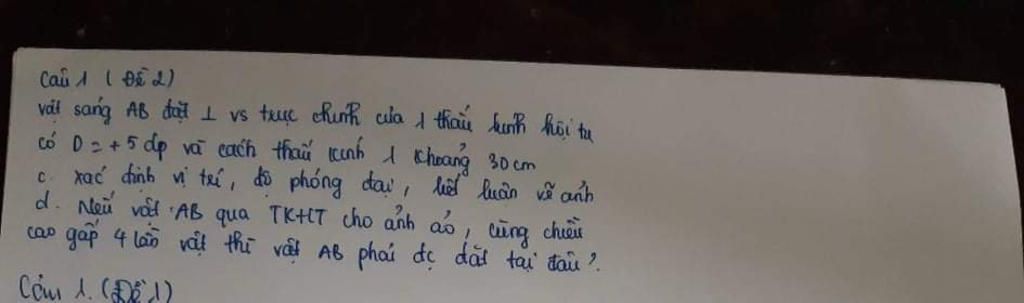 Câu 1 ( Đề 2)
vật sáng AB đặt ⊥ vs trục chính của 1 thấu kính hội tụ
có D = +5 dp và cách thấu kính 1 khoảng 30 cm
c. xác định vị trí, độ phóng đại, kết luận về ảnh
d. Nếu vật AB qua TKHT cho ảnh ảo, cùng chiều
cao gấp 4 lần vật thì vật AB phải đc đặt tại đâu?
Câu 1. (Đề 1)